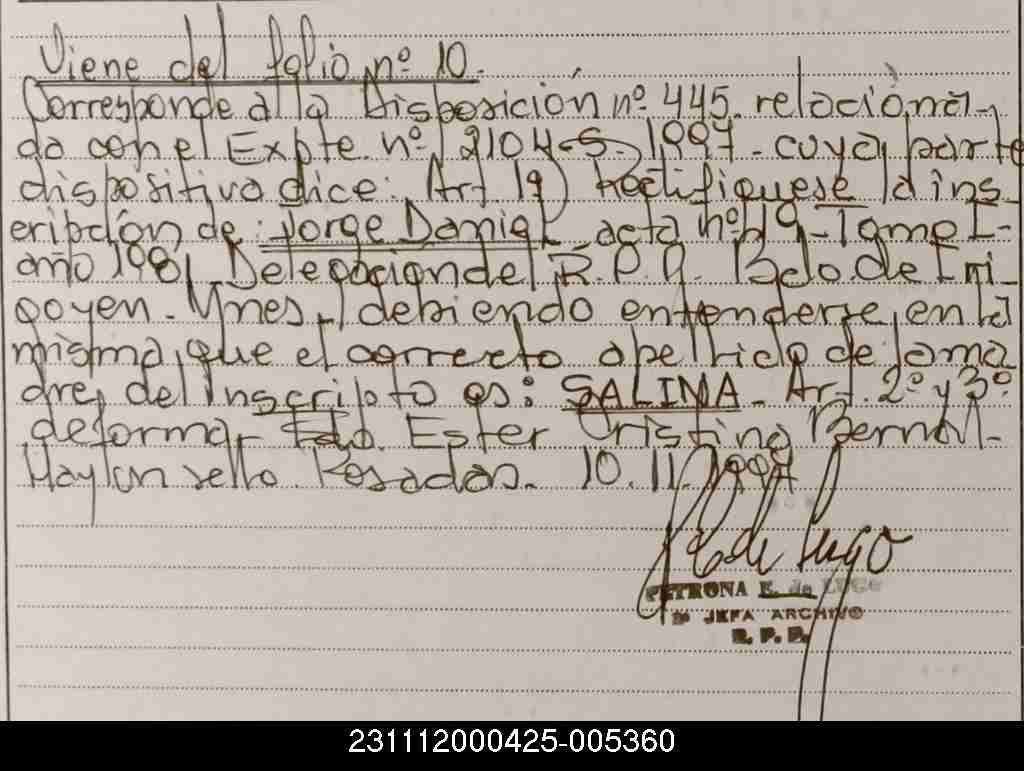 Viene del folio nº 10.
Corresponde a la Disposición nº 445. relaciona-
da con el Expte. nº 2104-S-1997- cuya parte
dispositiva dice: Art. 1º) Rectifiquese la ins
cripción de: Jorge Daniel acta nº 219-Tomo I-
año 1981 Delegación del R.P.P. Bdo. de Iri
goyen- Mnes, debiendo entenderse, en la
misma, que el correcto apellido de la ma
dre, del inscripto es: SALINA- Art. 2º y 3º
de forma- Fdo. Ester Cristina Bernal-
Hay un sello. Posadas. 10.11.1997
PETRONA E. de LUGO
JEFA ARCHIVO
R. P. P.
231112000425-005360